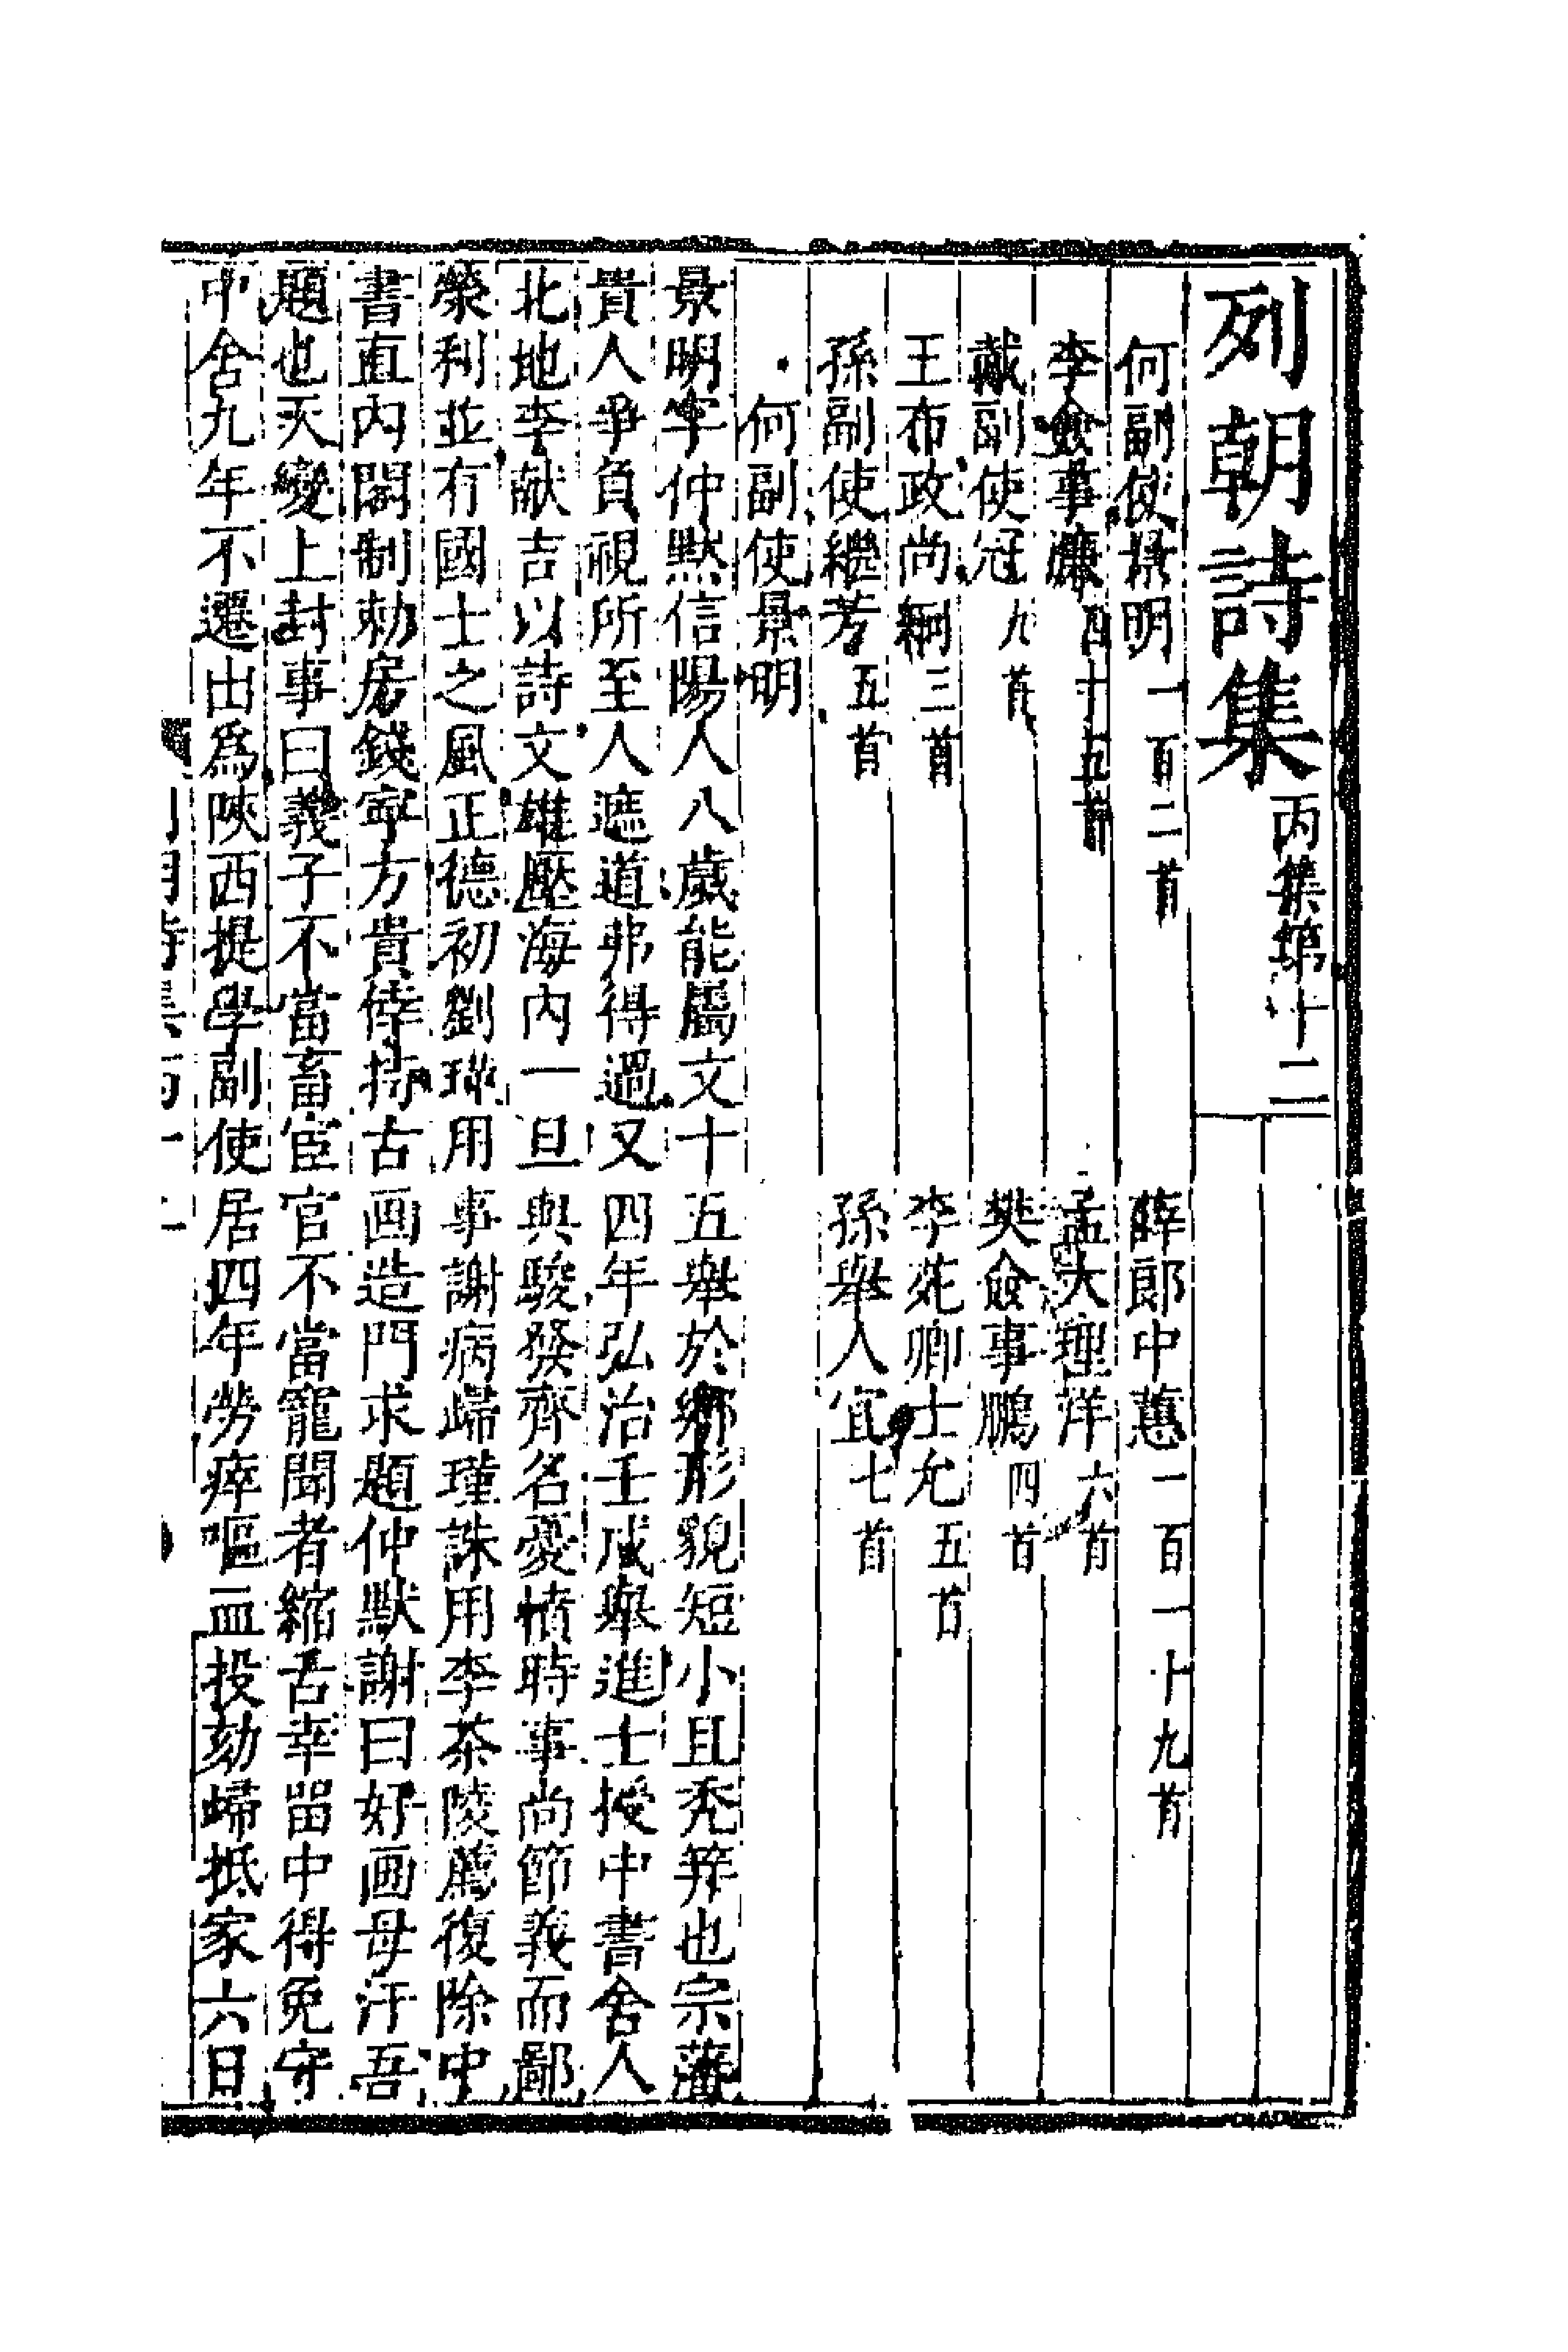 列朝詩集丙集第十二
何副使景明一百二首 薛郎中蕙一百一十九首
李僉事濂四十五首 孟大理洋六首
戴副使冠九首 樊僉事鵬四首
王布政尚絅三首 李苑卿士允五首
孫副使繼芳五首 孫舉人宜七首
何副使景明
景明字仲默信陽人八歲能屬文十五舉於鄉形貌短小且禿筓也宗藩
貴人爭負視所至人遮道弗得過又四年弘治壬戌舉進士授中書舍人
北地李献吉以詩文雄壓海內一旦與駿發齊名憂憤時事尚節義而鄙
榮利並有國士之風正德初劉瑾用事謝病歸瑾誅用李茶陵薦復除中
書直內閣制勑房錢寧方貴倖持古画造門求題仲默謝曰好画毋汙吾
題也天變上封事曰義子不當畜宦官不當寵聞者縮舌幸畱中得免守
中舍九年不遷出爲陝西提學副使居四年勞瘁嘔血投劾歸抵家六日